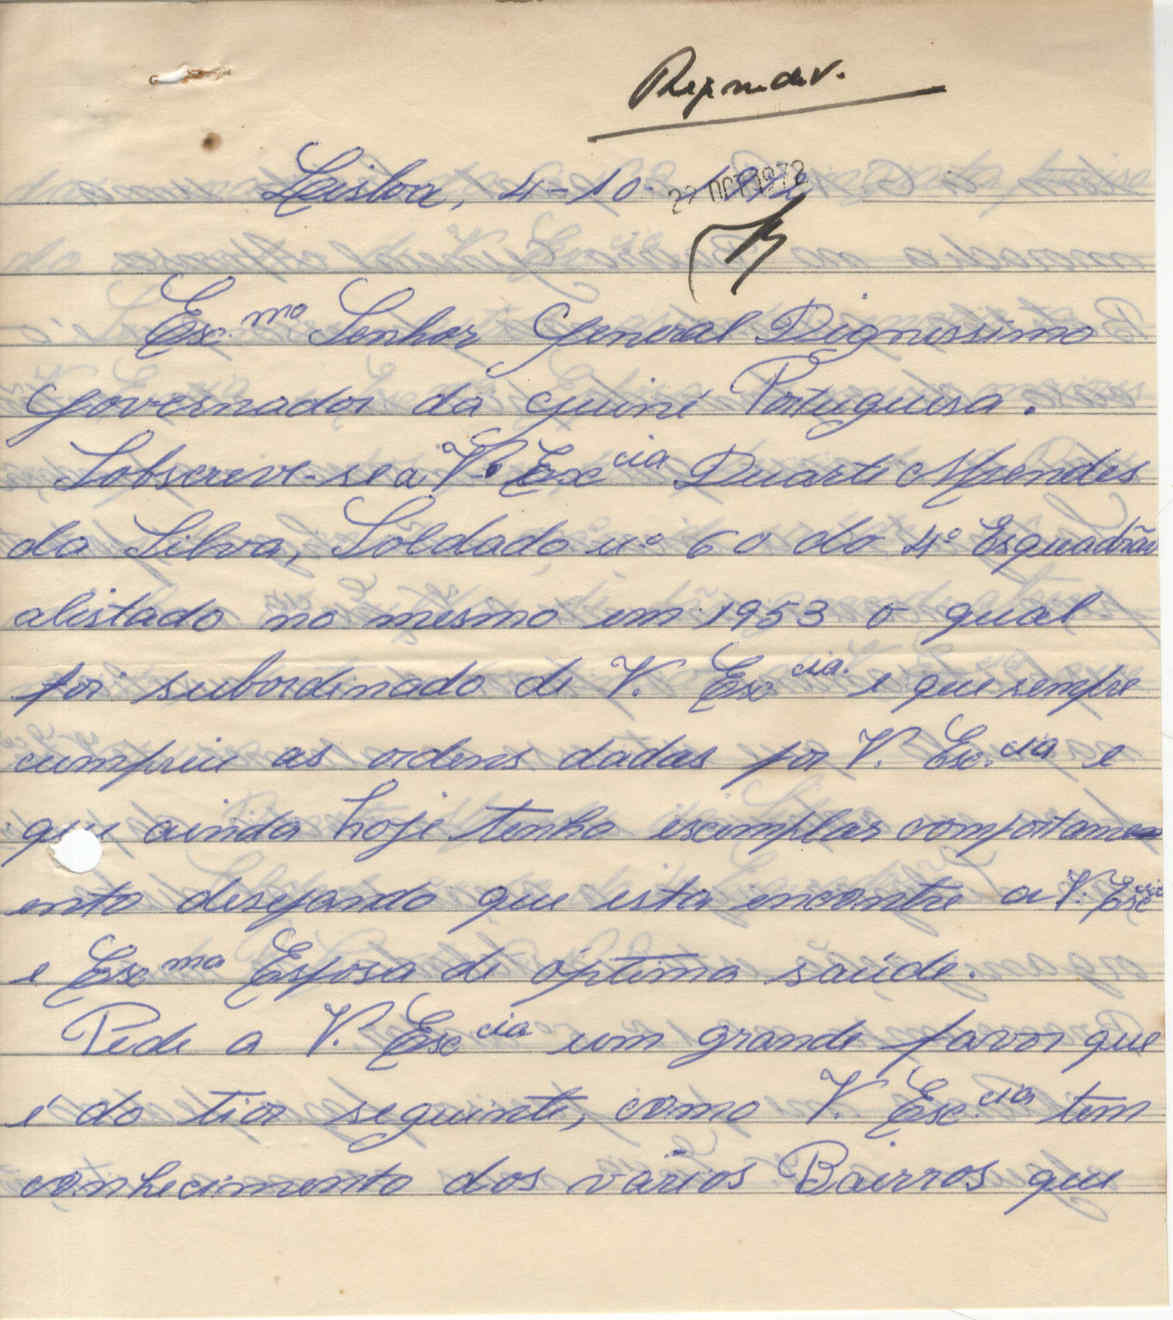 Responder.
Lisboa, 4-10-1972
27 OCT 1972
Exmo Senhor General Dignissimo
Governador da Guiné Portuguesa.
Sobscreve-se a V. Excia Duarte Mendes
da Silva, Soldado nº 60 do 4º Esquadrão
alistado no mesmo em 1953 o qual
foi subordinado de V. Excia. e que sempre
cumpriu as ordens dadas por V. Exc.cia e
que ainda hoje tenho iscemplar comportame
ento desejando que esta encontre a V. Excia
e Exma Esposa de óptima saúde.
Pede a V. Excia um grande favor que
é do tior seguinte, como V. Exc.cia tem
conhecimento dos vários Bairros que